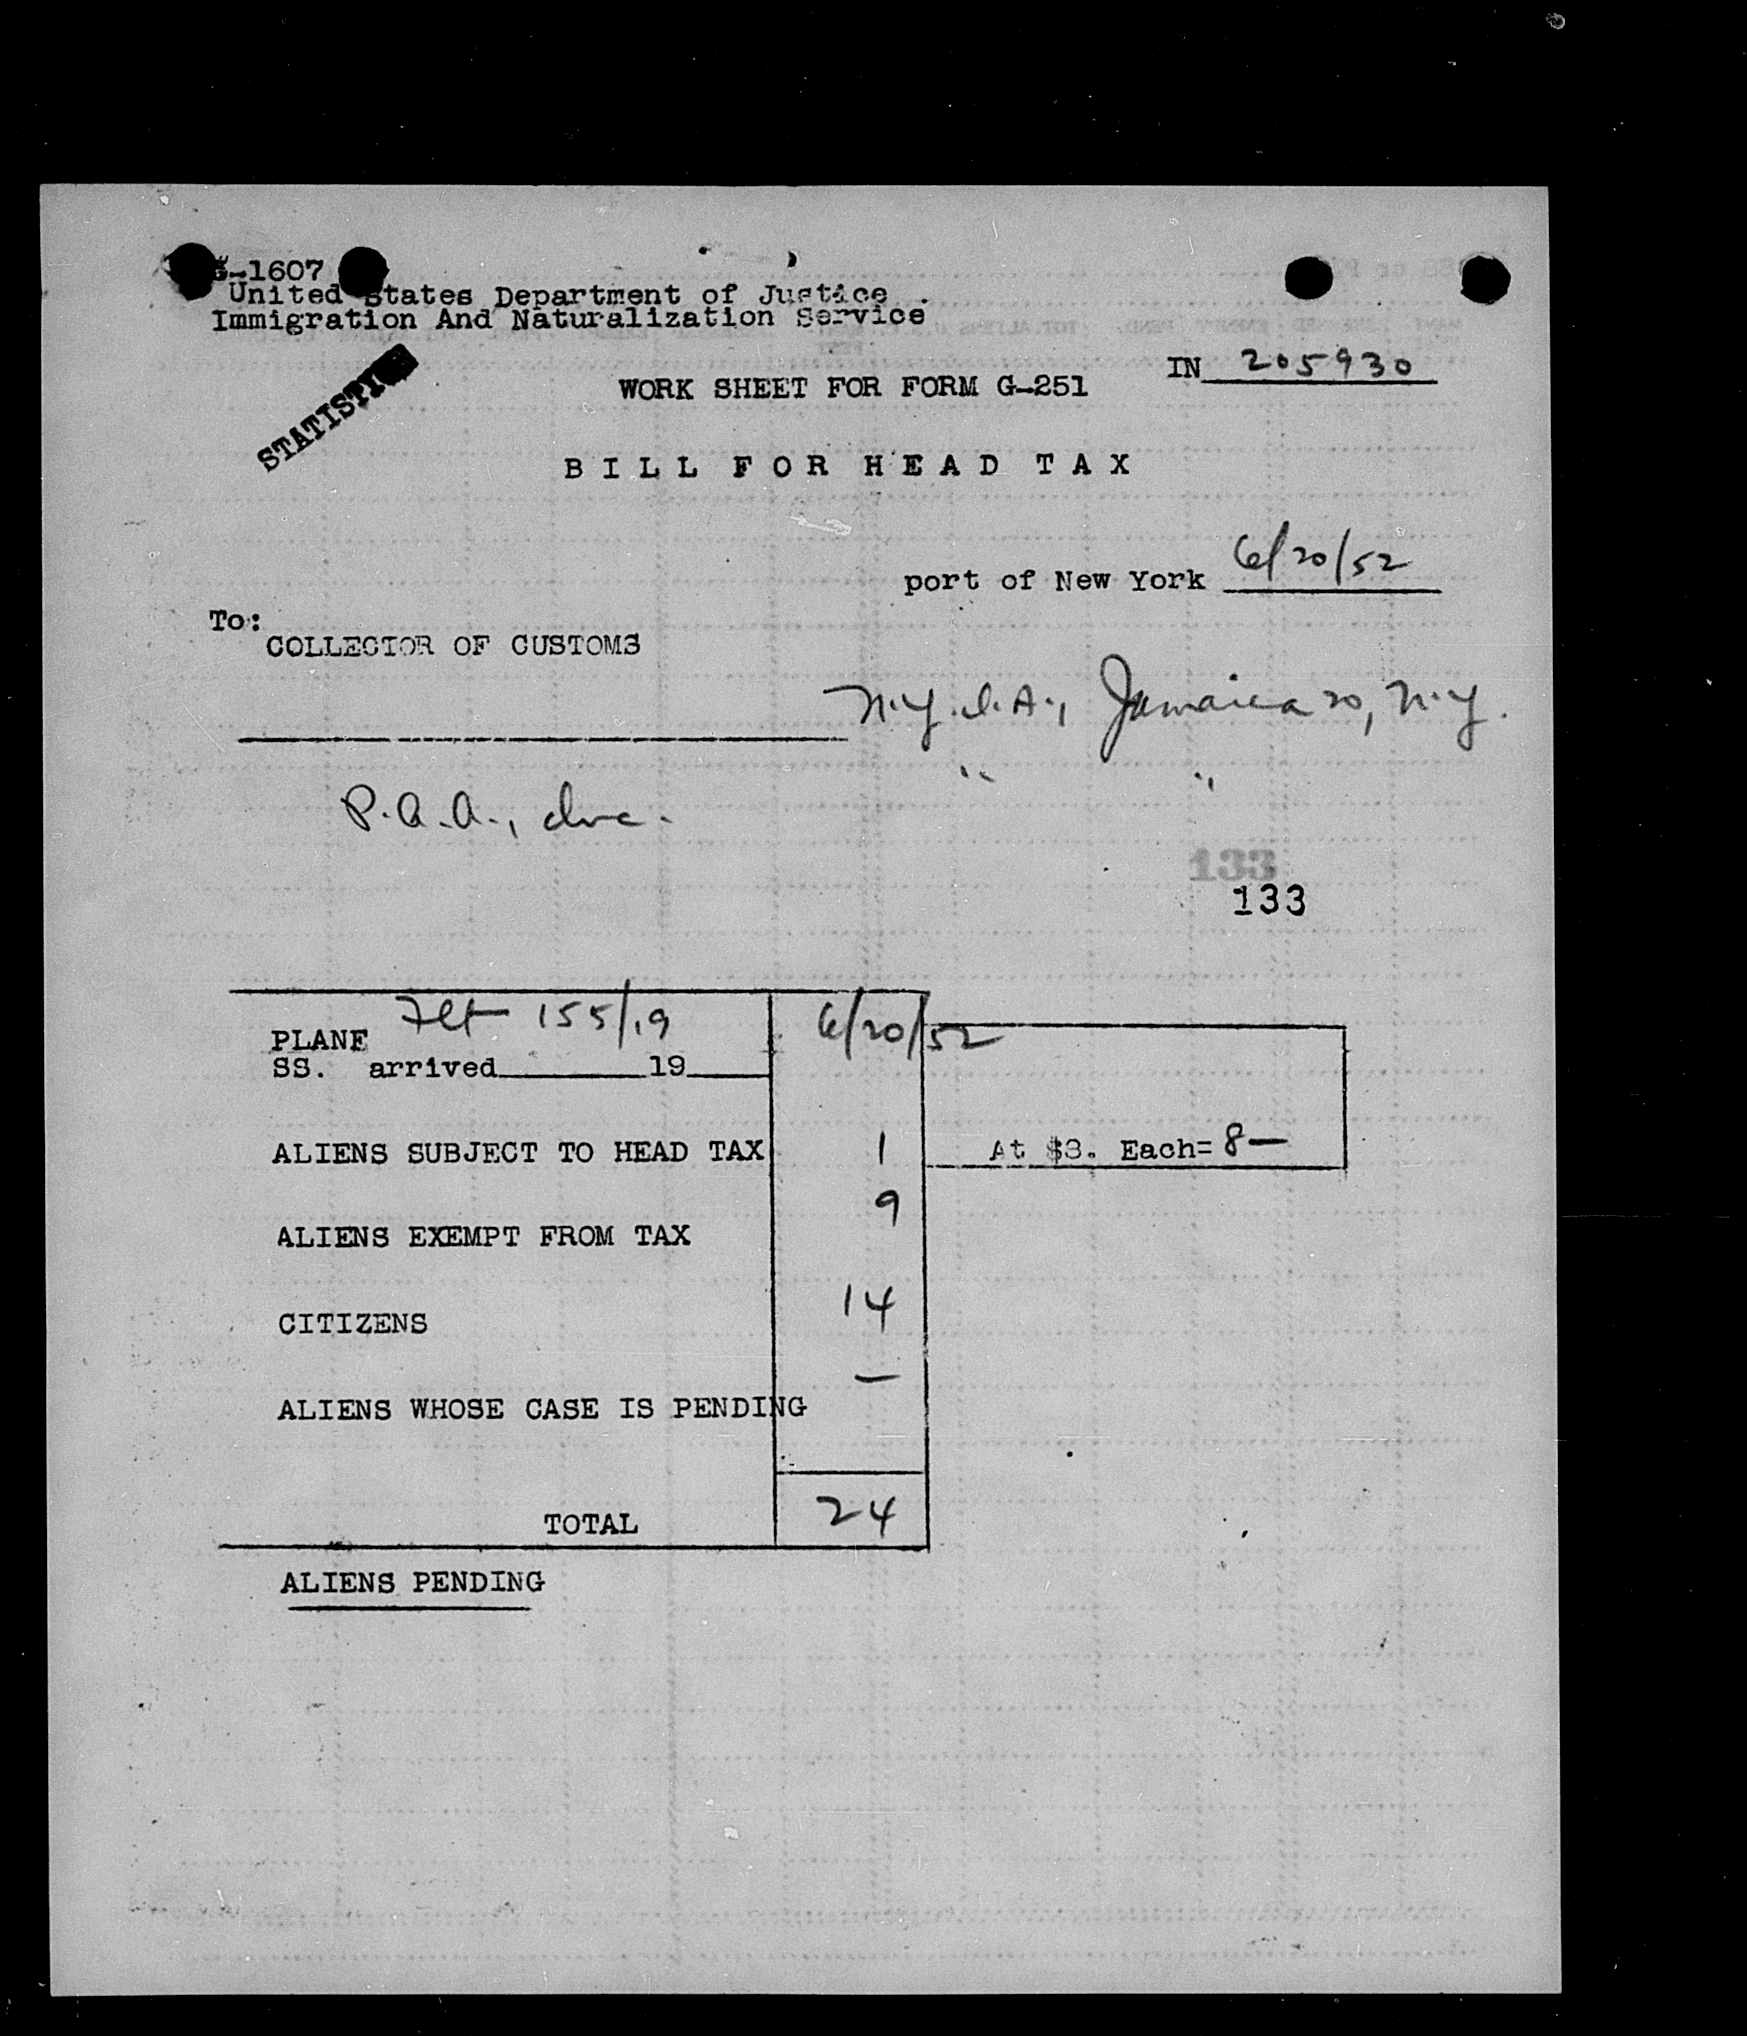 G-1607
United States Department of Justice
Immigration And Naturalization Service
STATISTICS
IN 205930
WORK SHEET FOR FORM G-251
BILL FOR HEAD TAX
port of New York 6/20/52
To:
COLLECTOR OF CUSTOMS
N.Y.I.A., Jamaica 20, N.Y.
" "
P.A.A., Inc.
133
133
Flt 155/19 6/20/52
PLANE
SS. arrived 19
ALIENS SUBJECT TO HEAD TAX 1 At $8. Each= 8—
ALIENS EXEMPT FROM TAX 9
CITIZENS 14
ALIENS WHOSE CASE IS PENDING —
TOTAL 24
ALIENS PENDING